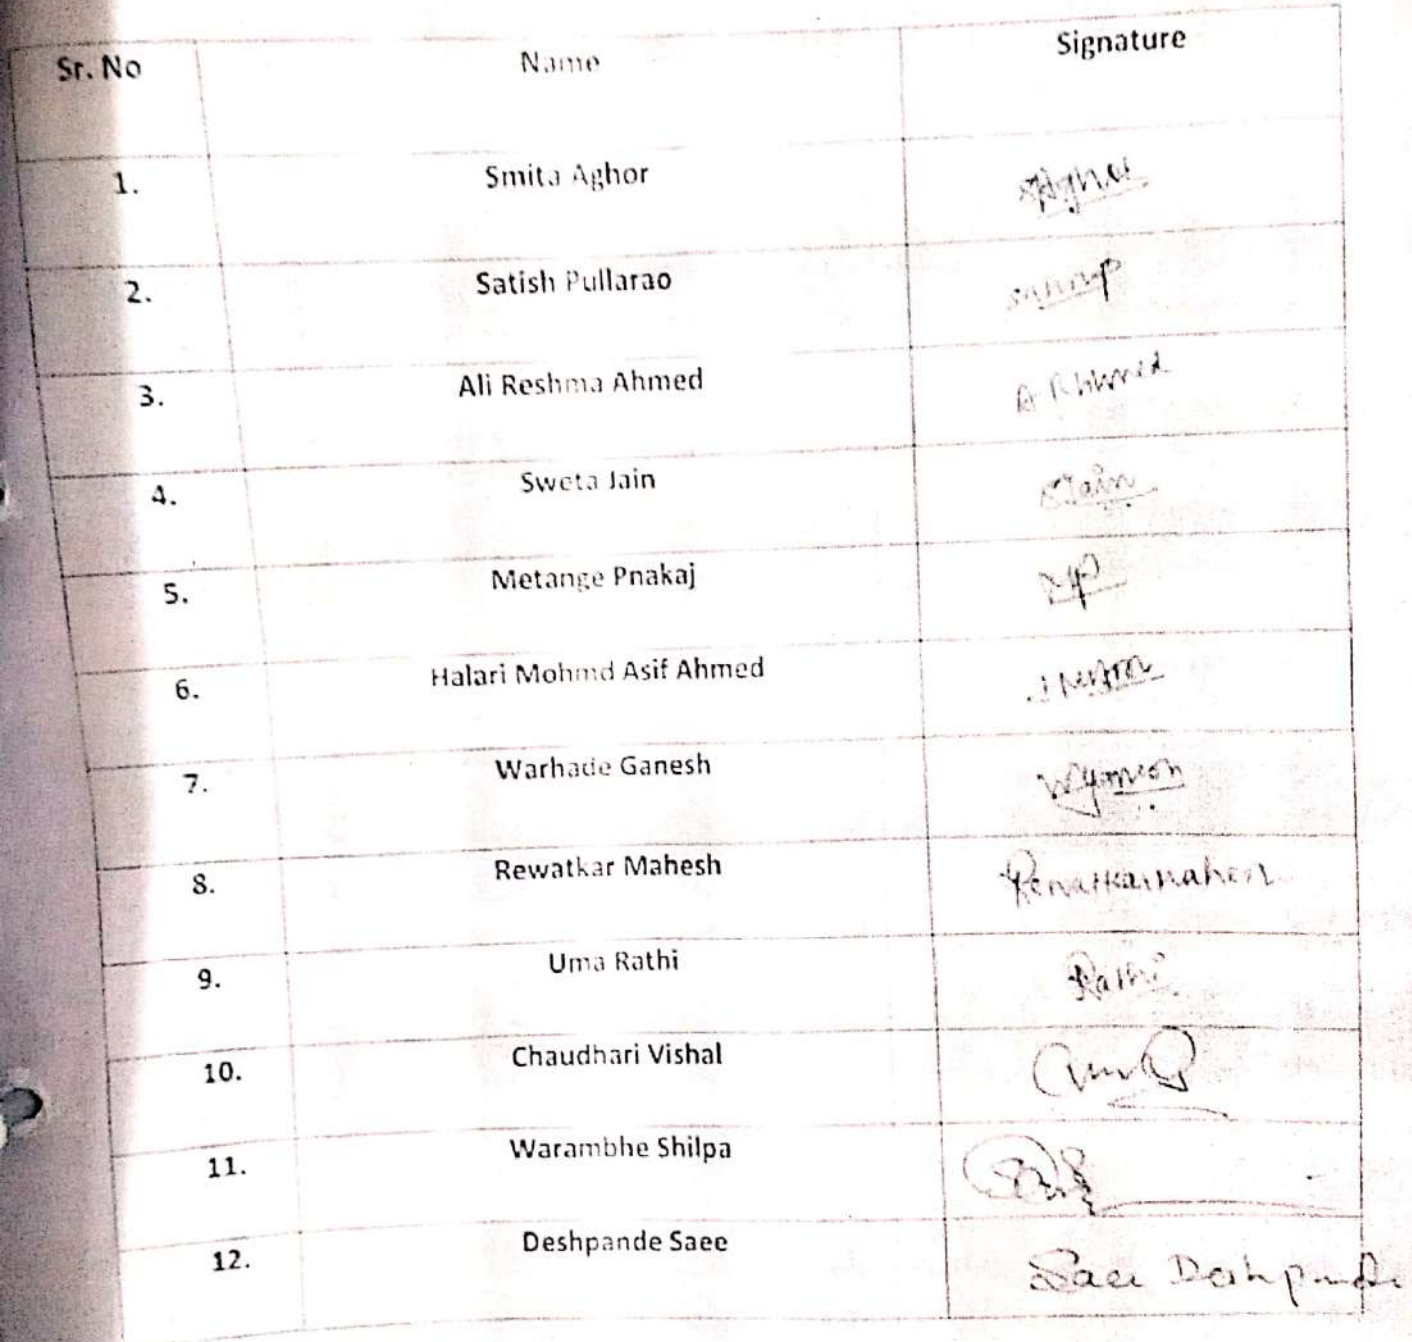 Sr. No Name Signature
1. Smita Aghor SAghor
2. Satish Pullarao
3. Ali Reshma Ahmed A R Ahmed
4. Sweta Jain SJain
5. Metange Pnakaj MP
6. Halari Mohmd Asif Ahmed
7. Warhade Ganesh
8. Rewatkar Mahesh Rewatkar Mahesh
9. Uma Rathi Rathi
10. Chaudhari Vishal
11. Warambhe Shilpa
12. Deshpande Saee Saee Deshpande